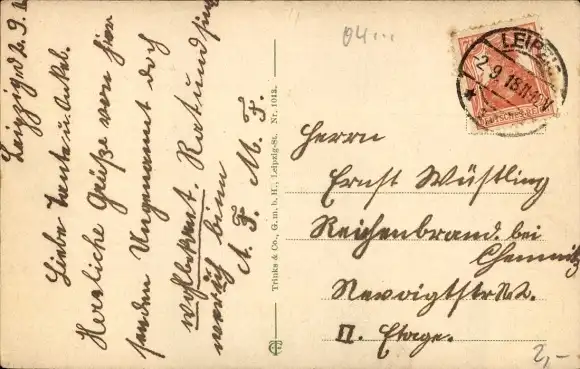 Leipzig, d. 2. 9. 18
Liebe Tante u. Onkel.
Herzliche Grüße von hier
senden Ungenannt doch
wohlbekannt. Ratund sind
wer ich bin
A. F. M. F.
Trinks & Co., G. m. b. H., Leipzig-St. Nr. 1013.
04...
LEIPZIG
2.9.18.11-12V
Herrn
Ernst Wüstling
Reichenbrand bei
Chemnitz
Nevoigtstr.
II. Etage.
2,-